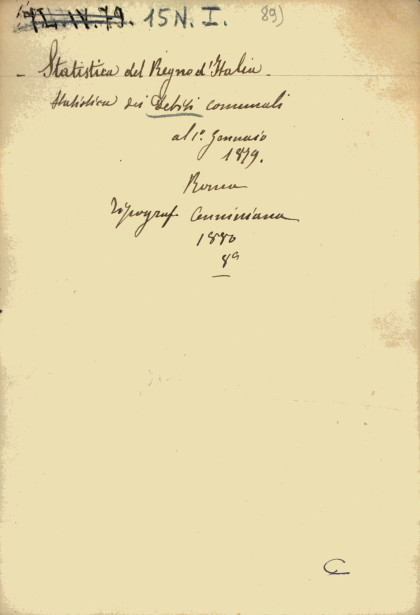 12.IV.79. 15 N. I. 89)
- Statistica del Regno d'Italia -
Statistica dei Debiti comunali
al 1º Gennaio
1879.
Roma
Tipograf Cenniniana
1880
8º
C